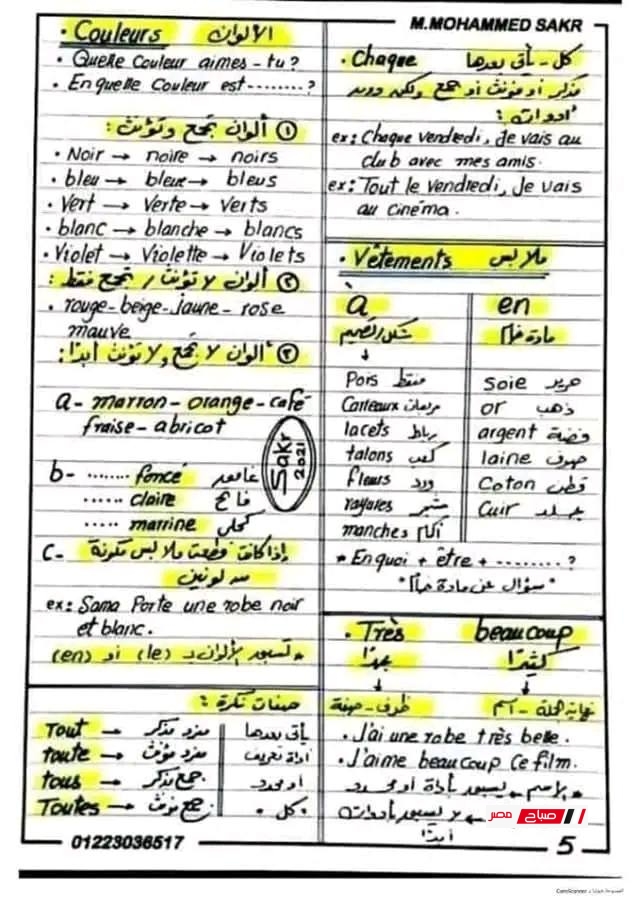 M.MOHAMMED SAKR
• Couleurs الألوان
• Quelle Couleur aimes-tu?
• En quelle Couleur est........?
① ألوان تجمع وتؤنث:
• Noir → noire → noirs
• bleu → bleue → bleus
• Vert → Verte → Verts
• blanc → blanche → blancs
• Violet → Violette → Violets
② ألوان لا تؤنث / تجمع فقط:
• rouge-beige-jaune-rose
mauve
③ ألوان لا تجمع ولا تؤنث أبدًا:
a- marron-orange-café
fraise-abricot
b- ........ foncé غامق
...... claire فاتح
..... marrine كحلى
c- إذا كانت قطعة ملابس مكونة
من لونين
ex: Sama Porte une robe noir
et blanc.
* تسبق الألوان بـ (le) أو (en)
Sakr
2021
صفات نكرة:
Tout → مفرد مذكر
toute → مفرد مؤنث
tous → جمع مذكر
Toutes → جمع مؤنث
يأتى بعدها
أداة تعريف
أو محدد
• كل •
• Chaque كل - يأتى بعدها
مذكر أو مؤنث أو جمع ولكن دون
أدوات:
ex: Chaque vendredi, Je vais au
club avec mes amis.
ex: Tout le vendredi, Je vais
au cinéma.
• Vêtements ملابس
à
شكل التصميم
↓
Pois منقط
Carreaux مربعات
lacets رباط
talons كعب
fleurs ورد
rayures مشجر
manches أكمام
en
مادة خام
soie حرير
or ذهب
argent فضة
laine صوف
Coton قطن
Cuir جلد
* En quoi + être + .........?
"سؤال عن مادة خام"
• Très beaucoup
جدًا كثيرًا
↓ ↓
ظرف - صفة نهاية الجملة - اسم
• J'ai une robe très belle.
• J'aime beaucoup Ce film.
* لا يسبق بأدوات
أبدًا
صباح مصر
01223036517
5
CamScanner